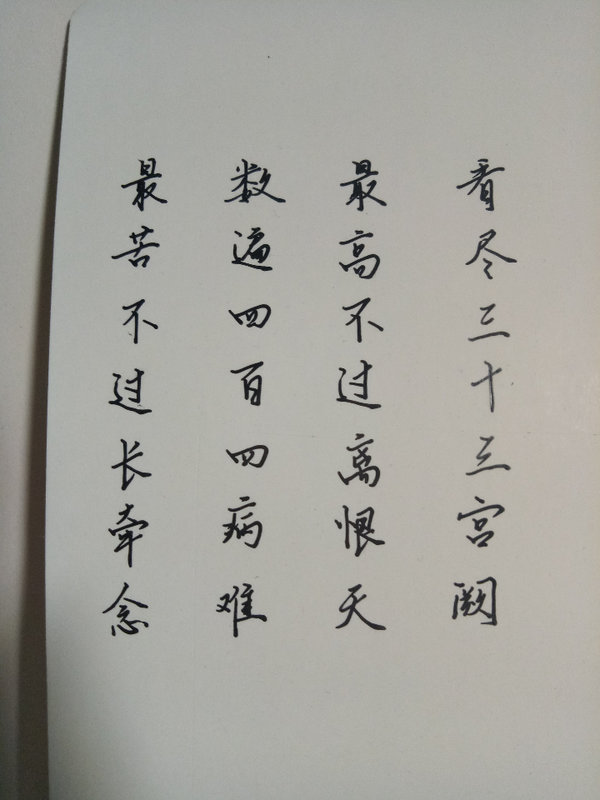 看尽三十三宫阙
最高不过离恨天
数遍四百四病难
最苦不过长牵念